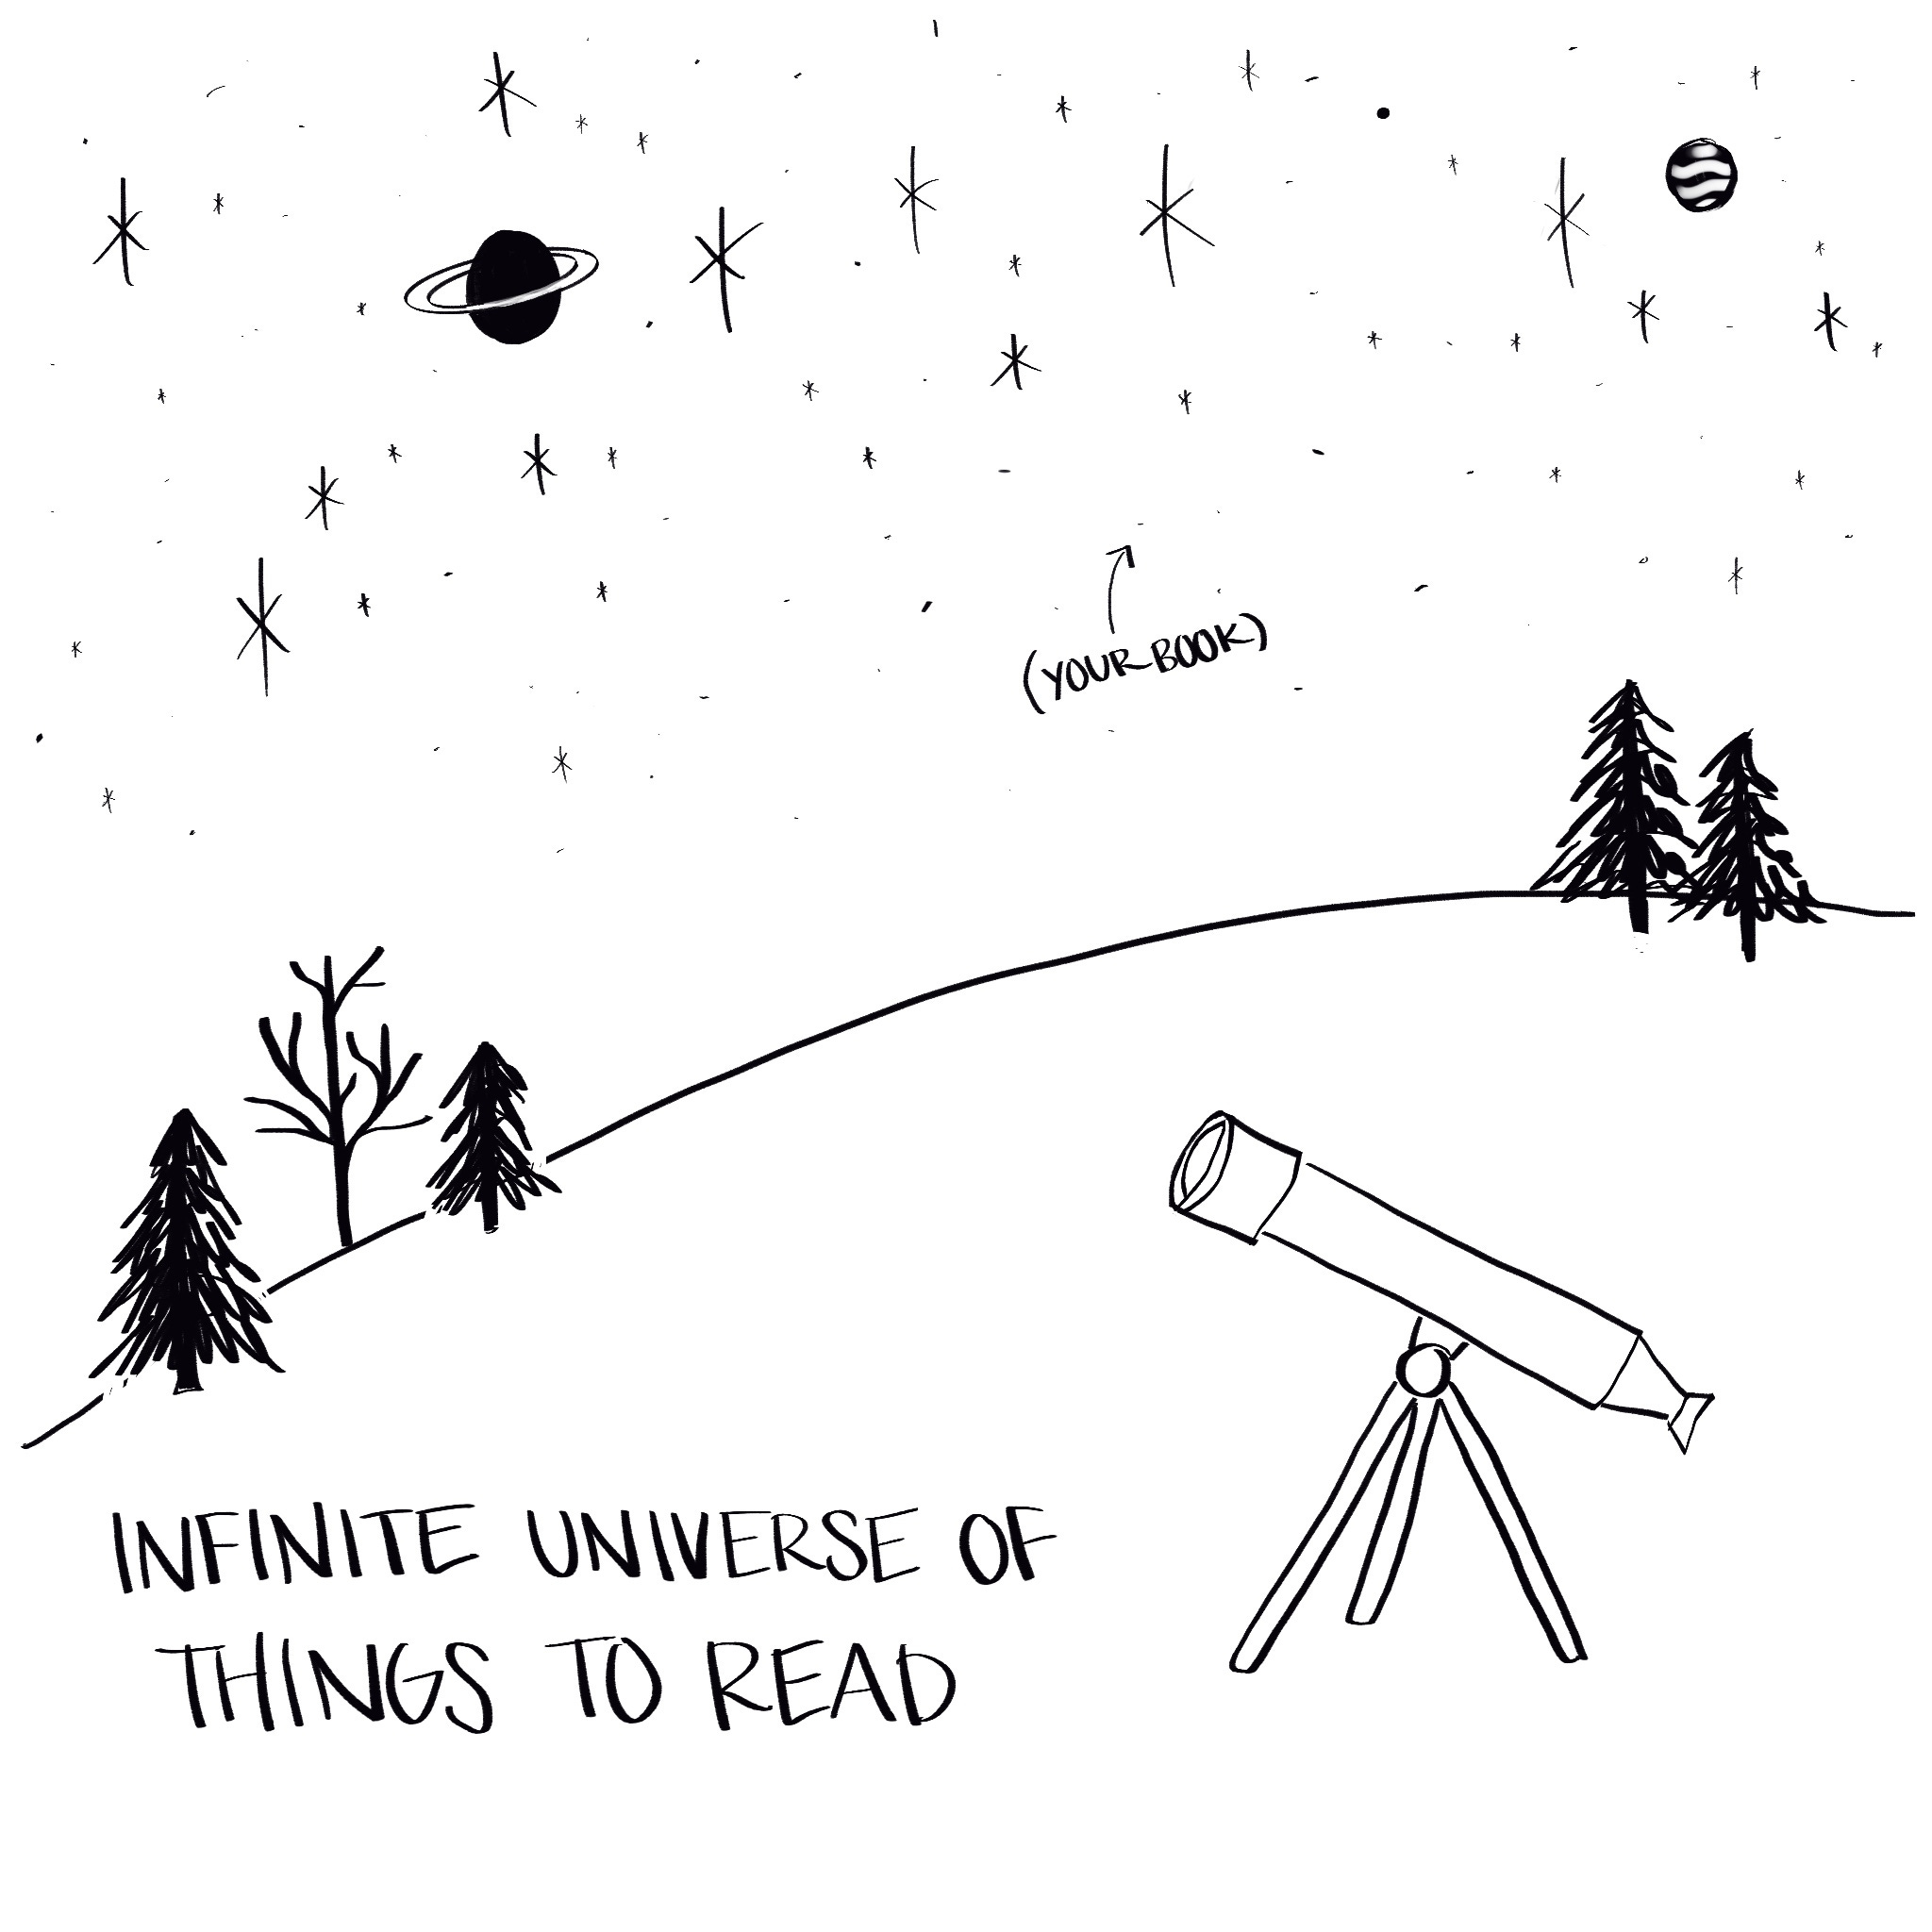 (YOUR BOOK)
INFINITE UNIVERSE OF
THINGS TO READ